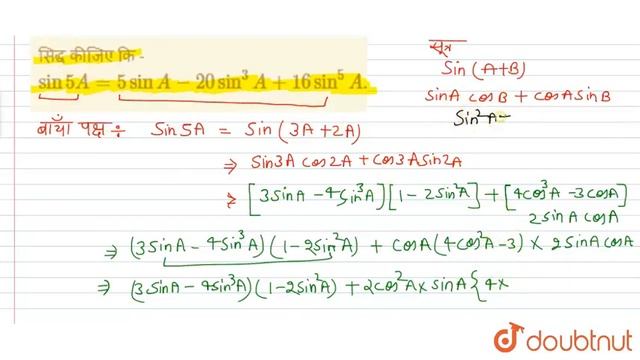 सिद्ध कीजिए कि -
sin 5A = 5 sin A − 20 sin³ A + 16 sin⁵ A.
सूत्र
Sin (A+B)
SinA cosB + cosA SinB
Sin²A =
बाँया पक्ष ÷ Sin5A = Sin (3A+2A)
⇒ Sin3A cos2A + cos3A Sin2A
⇒ [3SinA − 4Sin³A][1 − 2Sin²A] + [4cos³A − 3cosA]
2SinA cosA
⇒ (3SinA − 4Sin³A)(1 − 2Sin²A) + cosA(4cos²A − 3) × 2SinA cosA
⇒ (3SinA − 4Sin³A)(1 − 2Sin²A) + 2cos²A × SinA {4×
doubtnut